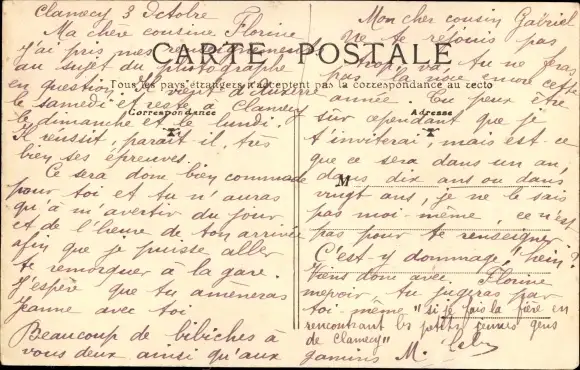 Clamecy 3 Octobre
Ma chère cousine Florine
J'ai pris mes renseignements
au sujet du photographe
en question. Il vient deux
le samedi et reste à Clamecy
le dimanche et le lundi.
Il réussit, paraît il, très
bien ses épreuves.
Ce sera donc bien commode
pour toi et tu n'auras
qu'à m'avertir du jour
et de l'heure de ton arrivée
afin que je puisse aller
te remorquer à la gare.
J'espère que tu amèneras
Jeanne avec toi
Beaucoup de bibiches à
vous deux ainsi qu'aux
gamins M.
CARTE POSTALE
Tous les pays étrangers n'acceptent pas la correspondance au recto
Correspondance
Adresse
M
Mon cher cousin Gabriel
Ne te réjouis pas
trop va, tu ne feras
pas la noce encore cette
année. Tu peux être
sûr cependant que je
t'inviterai mais est-ce
que ce sera dans un an,
dans dix ans ou dans
vingt ans, je ne le sais
pas moi-même, ce n'est
pas pour te renseigner.
C'est-y dommage, hein?
Viens donc avec Florine
me voir tu jugeras par
toi-même "si je fais la fière en
rencontrant les petits jeunes gens
de Clamecy"